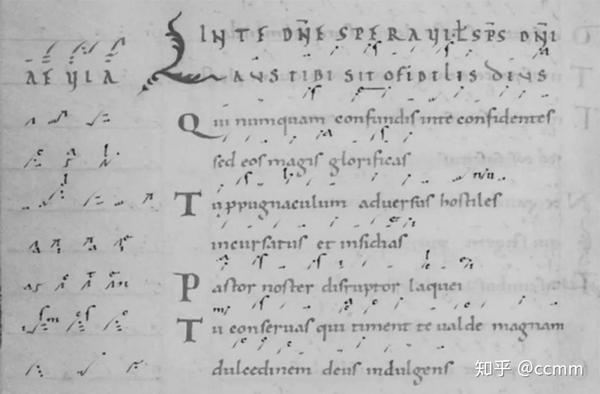 INTE DNE SPERAVI ł SPS DNI
AEVIA LAUS TIBI SIT O FIDELIS DEUS
Qui numquam confundis inte confidentes
sed eos magis glorificas
Tu ppugnaculum adversus hostiles
incursatus et insidias
Pastor noster disruptor laquei
Tu conservas qui timent te valde magnam
dulcedinem deus indulgens
知乎 @ccmm